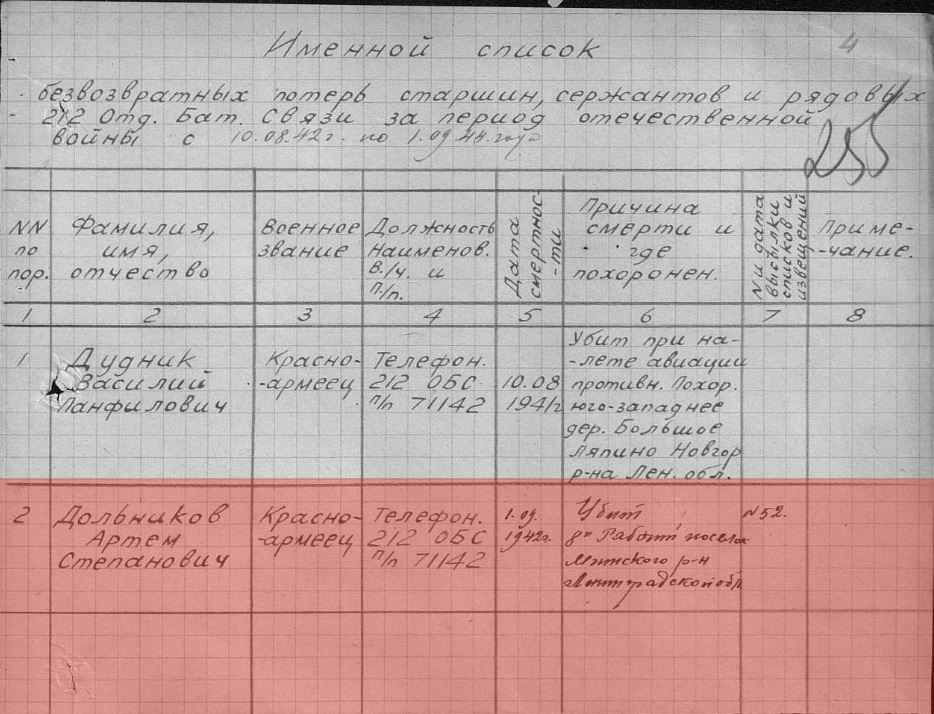 4
Именной список
безвозвратных потерь старшин, сержантов и рядовых
212 Отд. Бат. Связи за период отечественной
войны с 10.08.42г. по 1.09.44. года
255
NN по пор.
Фамилия, имя, отчество
Военное звание
Должность Наименов. в./ч. и п./п.
Дата смертнос--ти
Причина смерти и где похоронен.
N и дата высылки списков и извещений
Приме--чание.
1 2 3 4 5 6 7 8
1
Дудник
Василий
Панфилович
Красно-
-армеец
Телефон.
212 ОБС
п/п 71142
10.08
1941г
Убит при на-
-лете авиации
противн. Похор.
юго-западнее
дер. Большое
Ляпино Новгор
р-на Лен. обл.
2
Дольников
Артем
Степанович
Красно-
-армеец
Телефон.
212 ОБС
п/п 71142
1.09.
1942г.
Убит
Рабочий поселок
Мгинского р-н
Ленинградской обл
N52.